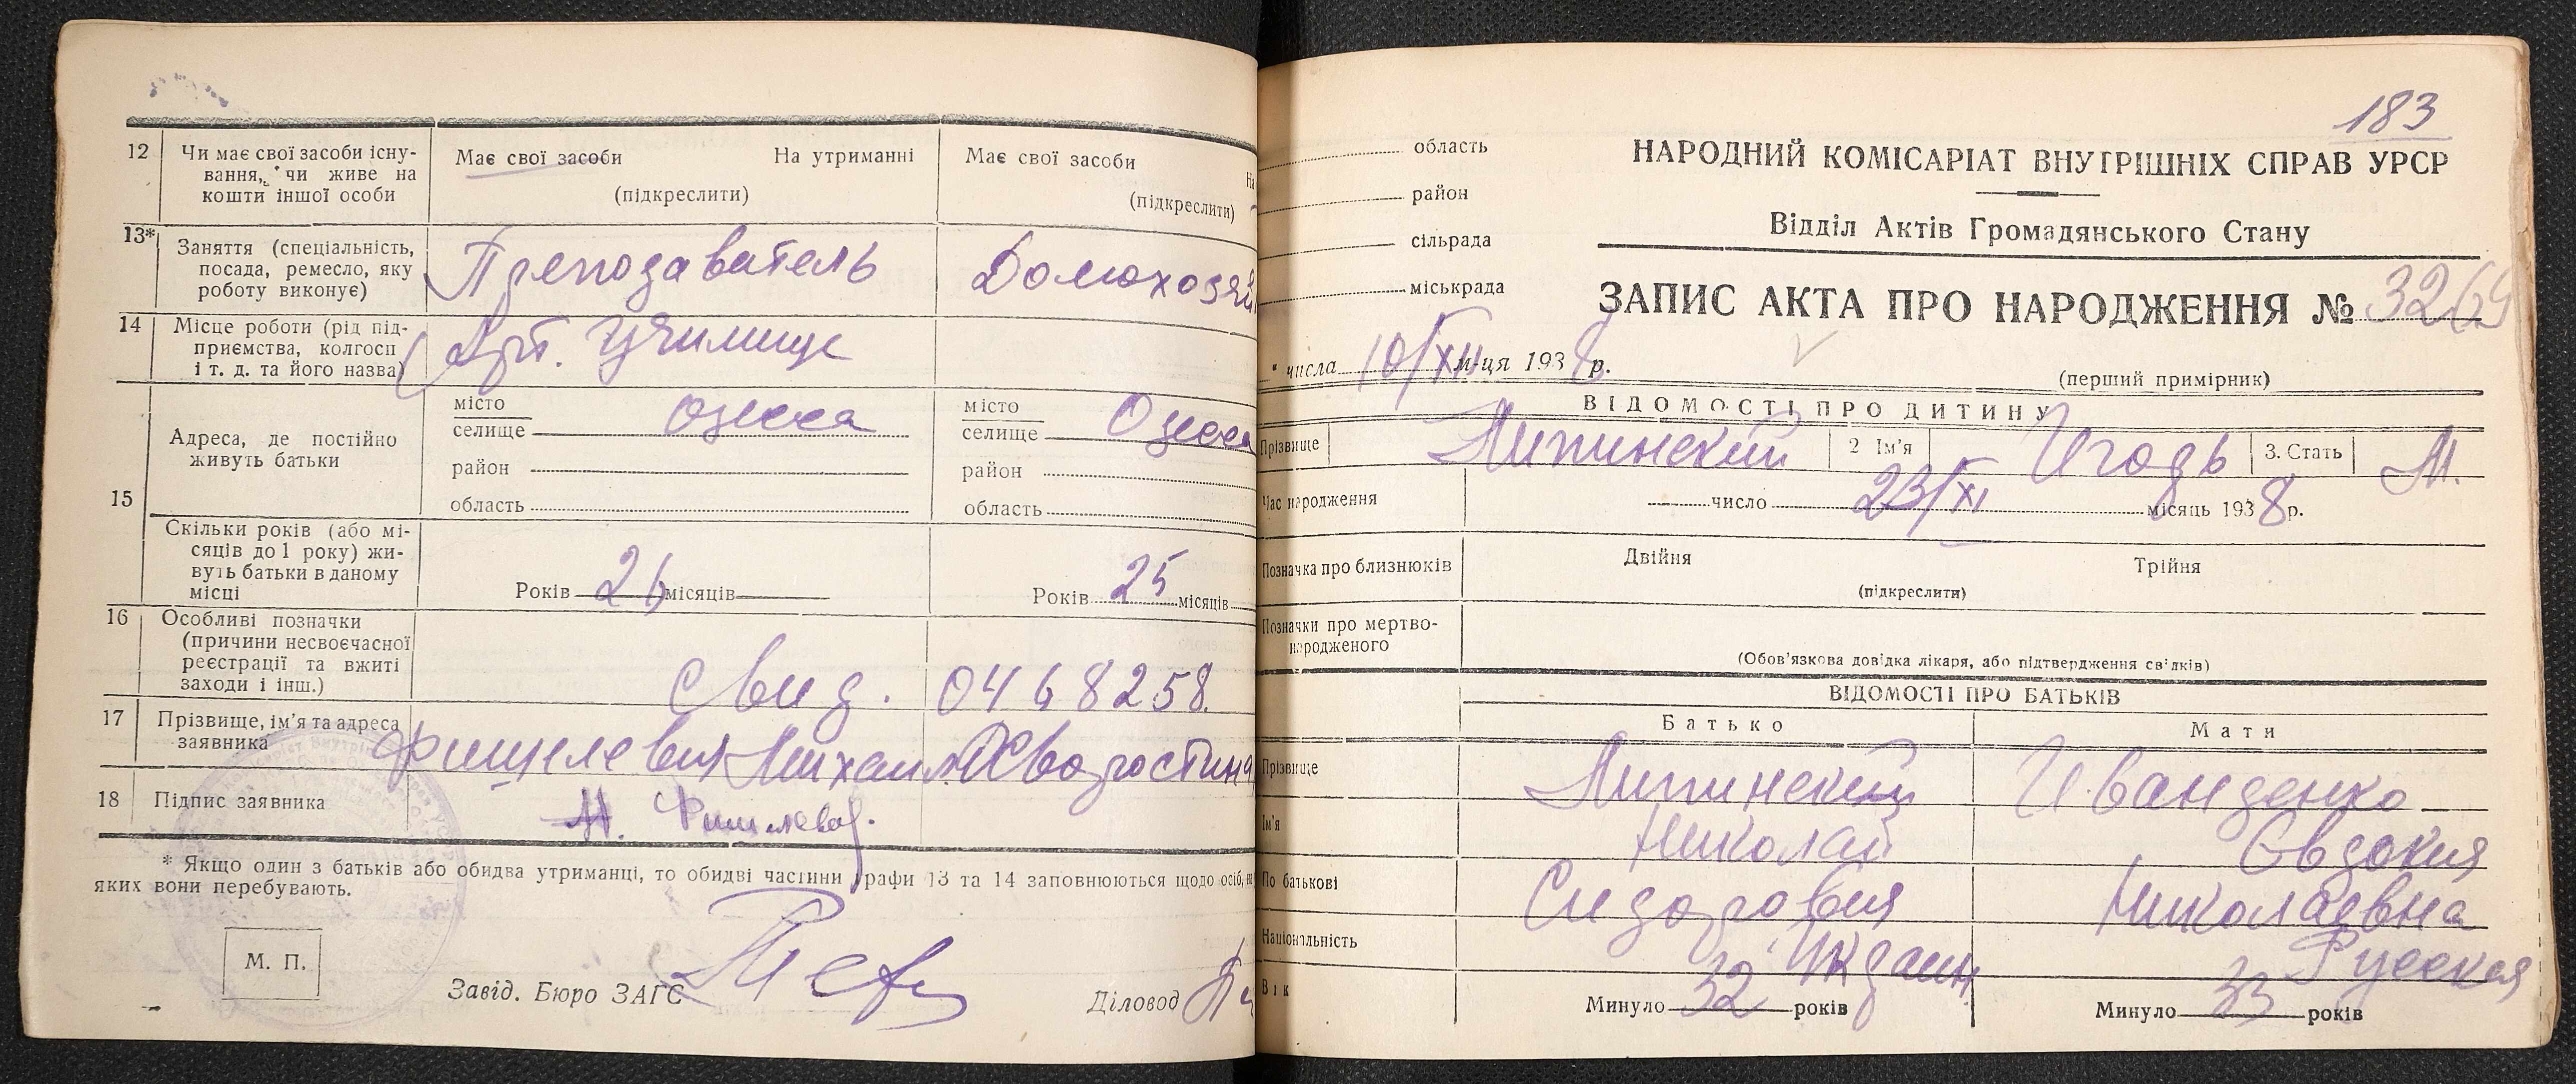 12 Чи має свої засоби існу-
вання, чи живе на
кошти іншої особи
Має свої засоби На утриманні
(підкреслити)
Має свої засоби
На
(підкреслити)
13* Заняття (спеціальність,
посада, ремесло, яку
роботу виконує)
Преподаватель
Домохозяй
14 Місце роботи (рід під-
приємства, колгосп
і т. д. та його назва)
Арт. Училище
15
Адреса, де постійно
живуть батьки
місто
селище Одесса
район
область
місто
селище Одесса
район
область
Скільки років (або мі-
сяців до 1 року) жи-
вуть батьки в даному
місці
Років 26 місяців
Років 25 місяців
16 Особливі позначки
(причини несвоєчасної
реєстрації та вжиті
заходи і інш.)
Свид. 0468258.
17 Прізвище, ім'я та адреса
заявника
Фишелевич Михаил
18 Підпис заявника
* Якщо один з батьків або обидва утриманці, то обидві частини графи 13 та 14 заповнюються щодо осіб, на
яких вони перебувають.
М. П.
Завід. Бюро ЗАГС
Діловод
183
область
район
сільрада
міськрада
НАРОДНИЙ КОМІСАРІАТ ВНУТРІШНІХ СПРАВ УРСР
Відділ Актів Громадянського Стану
ЗАПИС АКТА ПРО НАРОДЖЕННЯ № 3269
" числа 10/XII м-ця 1938 р.
(перший примірник)
ВІДОМОСТІ ПРО ДИТИНУ
Прізвище Липинский 2 Ім'я Игорь 3. Стать М.
Час народження
число 23/XI місяць 1938 р.
Позначка про близнюків
Двійня Трійня
(підкреслити)
Позначки про мертво-
народженого
(Обов'язкова довідка лікаря, або підтвердження свідків)
ВІДОМОСТІ ПРО БАТЬКІВ
Батько Мати
Прізвище Липинский Иванденко
Ім'я Николай Евдокия
По батькові Сидорович Николаевна
Національність Украин. Русская
Вік
Минуло 32 років
Минуло 33 років